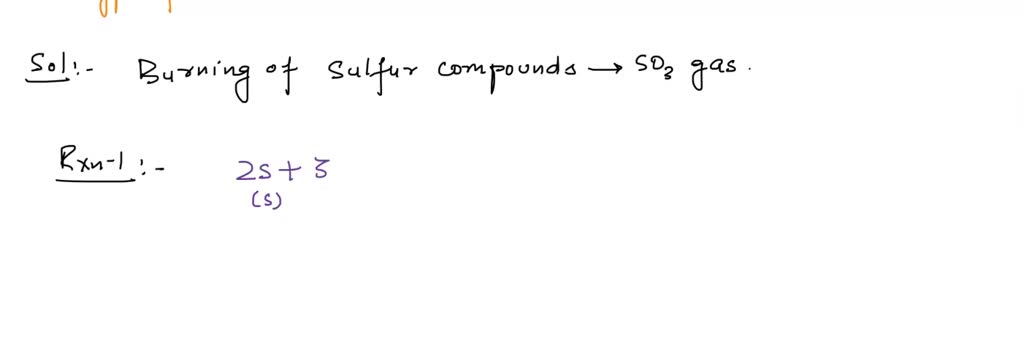 Sol:- Burning of Sulfur compounds → SO₃ gas.
Rxn-1:- 2S + 3
(s)